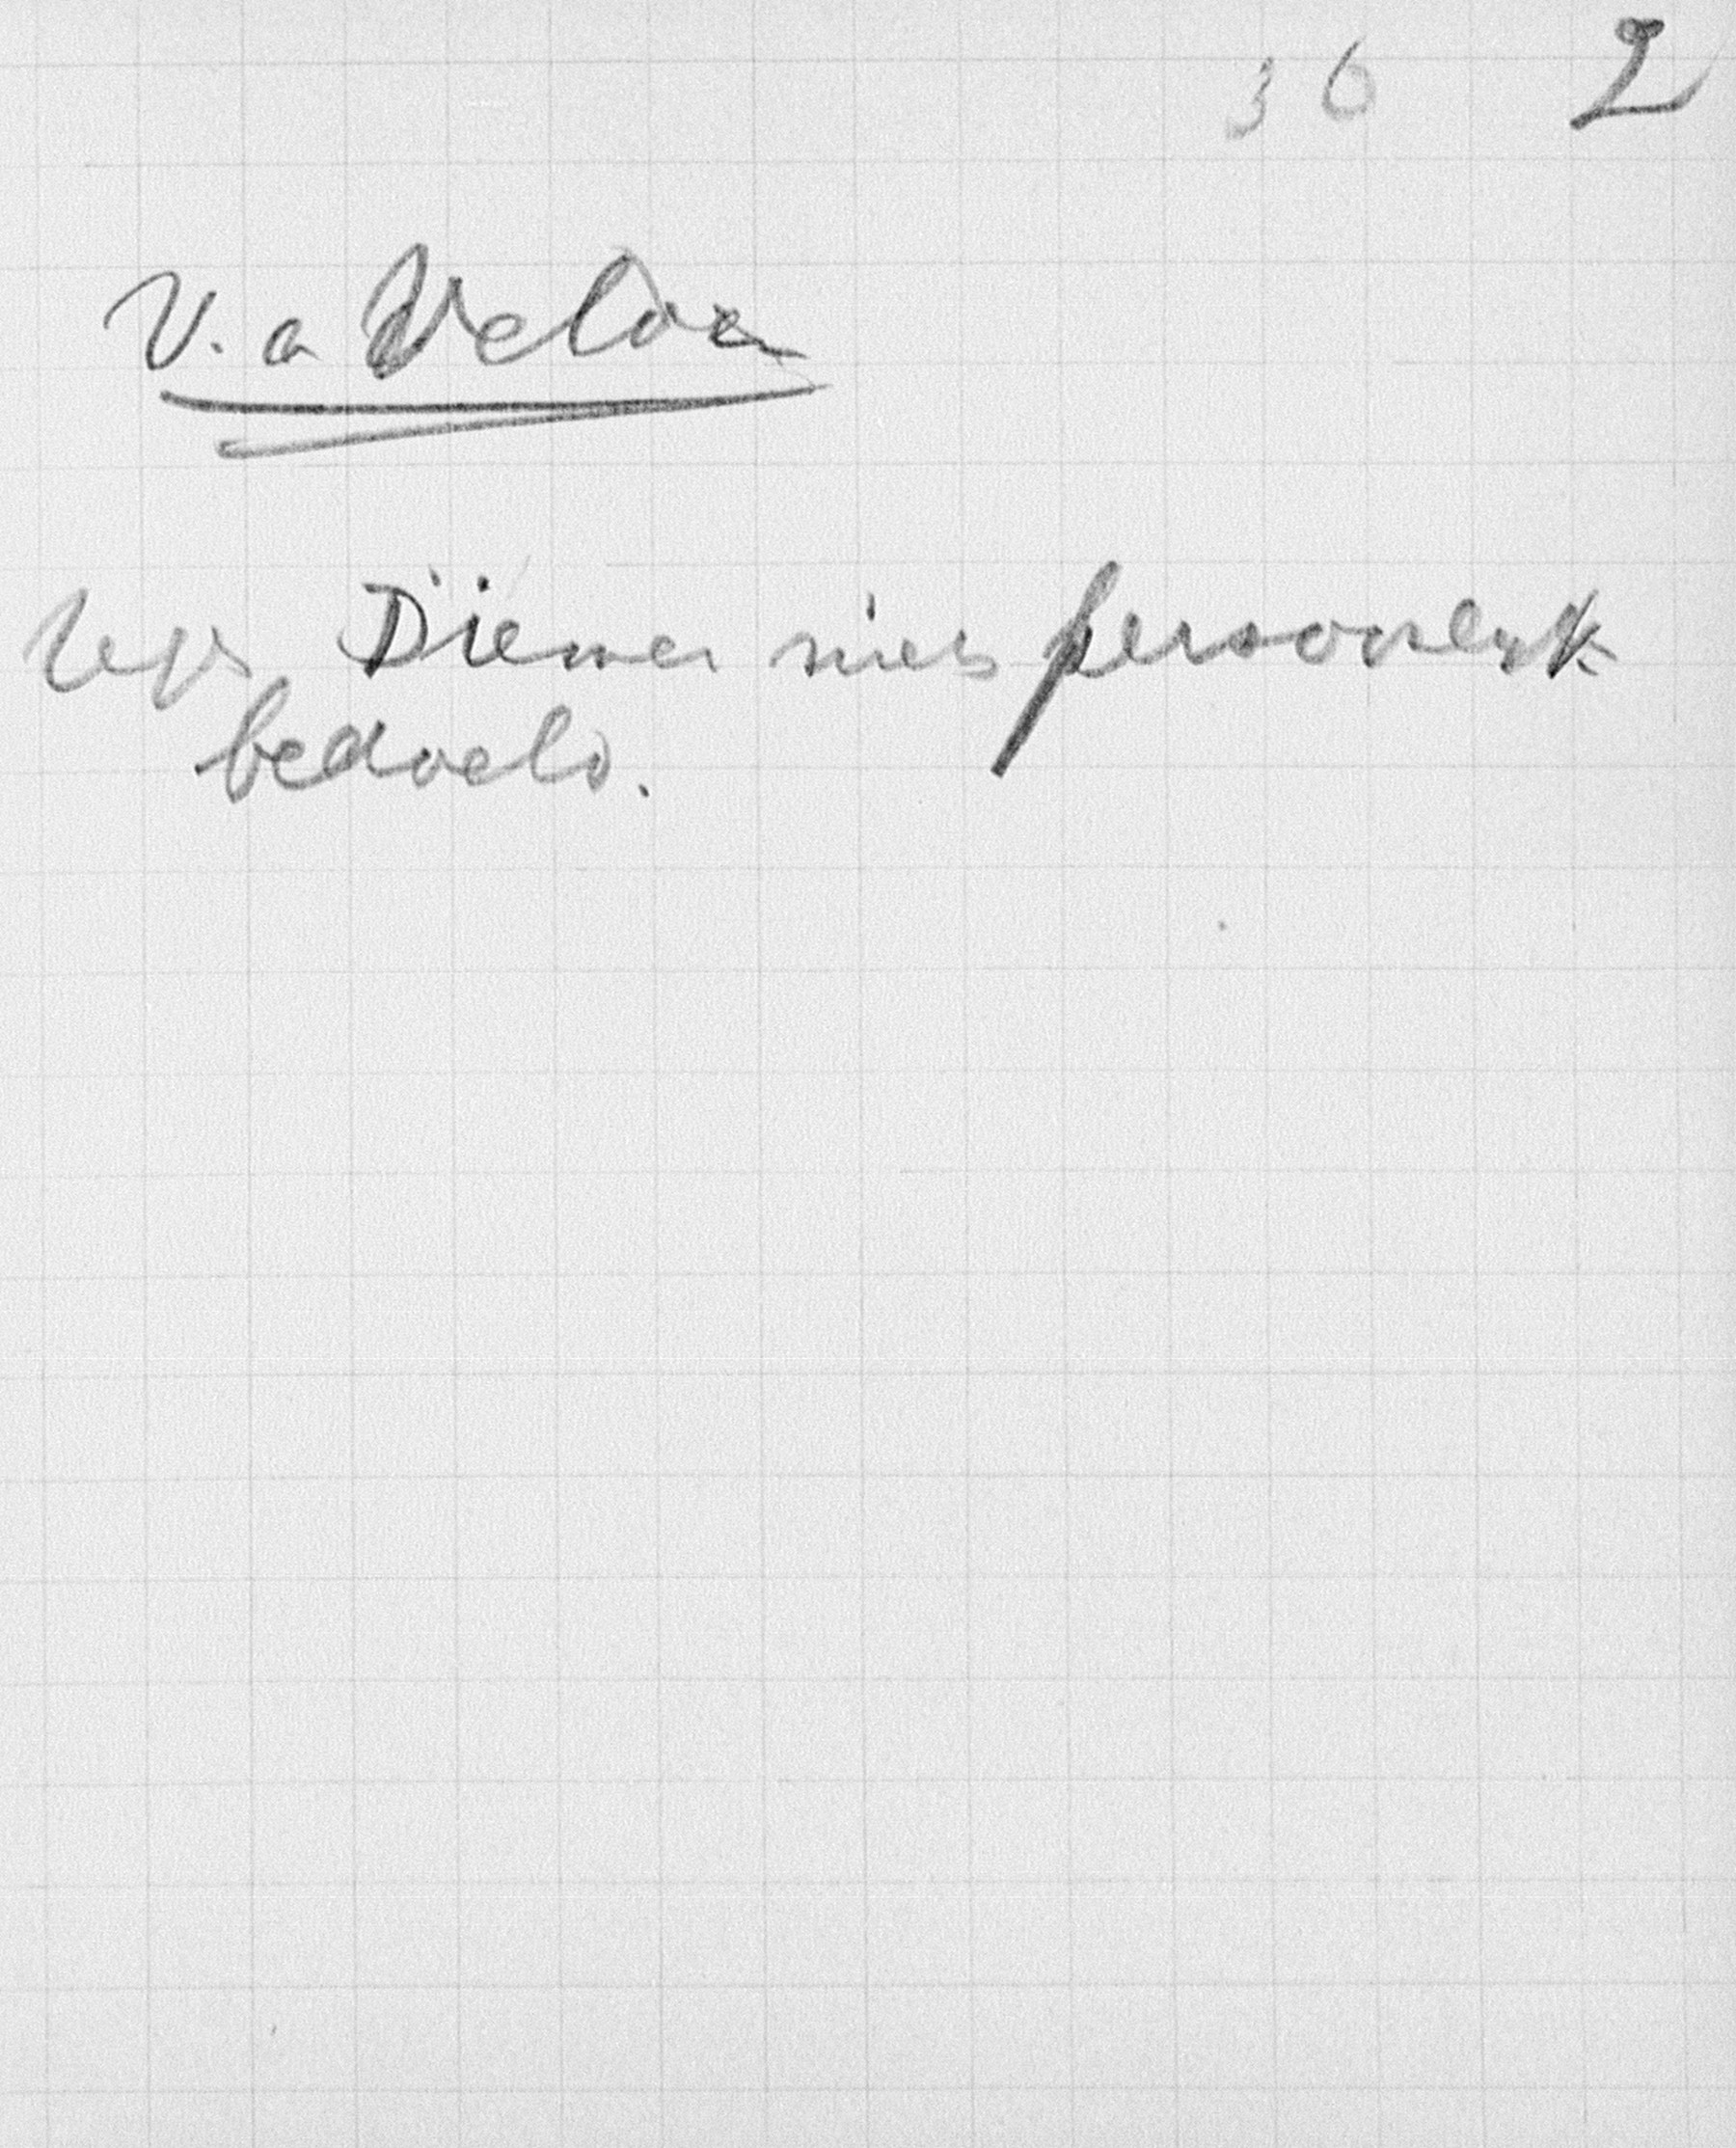 36 2
V. a Velde
Diemer niet persoonlijk
bedoeld.